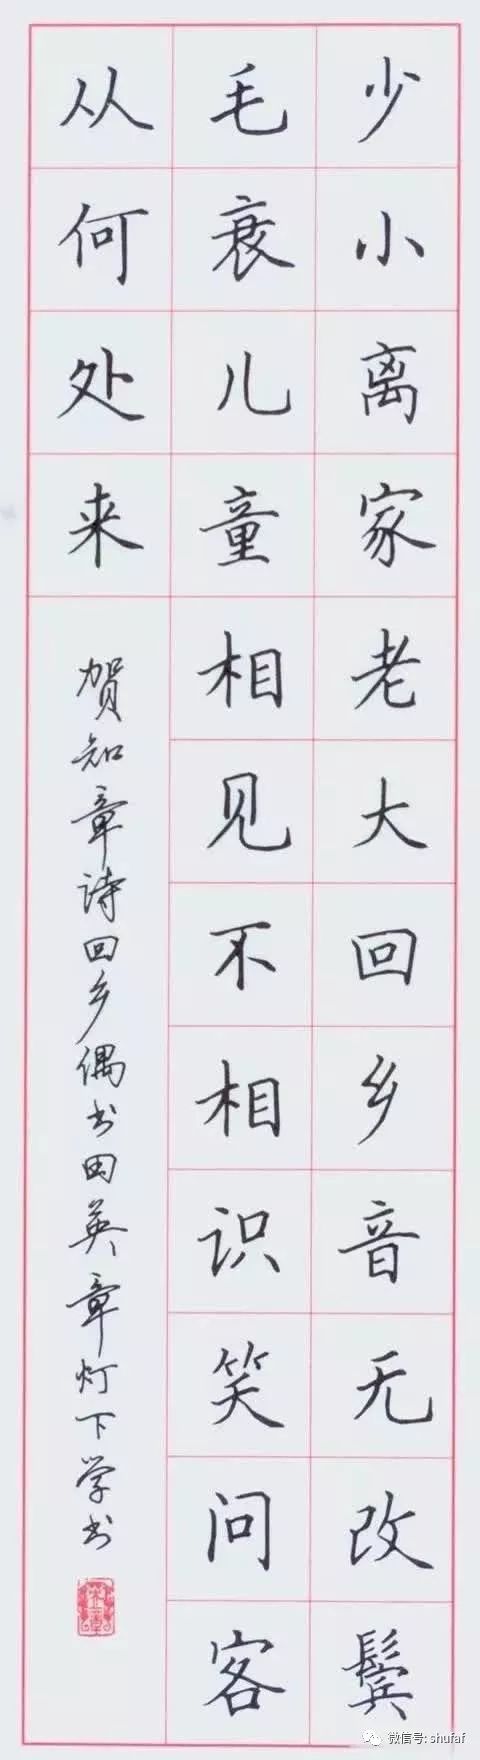 少小离家老大回乡音无改鬓
毛衰儿童相见不相识笑问客
从何处来
贺知章诗回乡偶书田英章灯下学书
微信号: shufaf